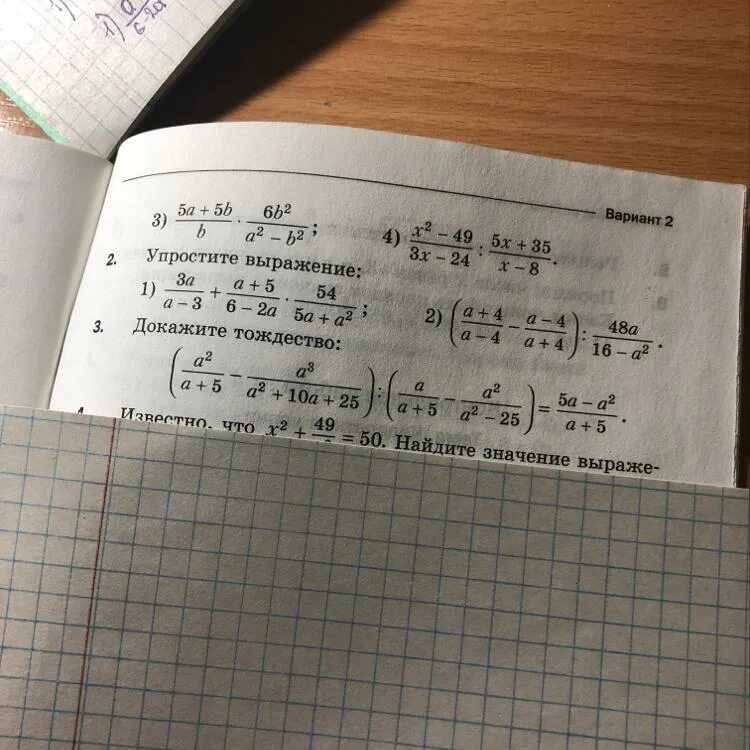 Вариант 2
3) (5a + 5b)/b · 6b²/(a² − b²);   4) (x² − 49)/(3x − 24) : (5x + 35)/(x − 8).
2. Упростите выражение:
1) 3a/(a − 3) + (a + 5)/(6 − 2a) · 54/(5a + a²);   2) ((a + 4)/(a − 4) − (a − 4)/(a + 4)) : 48a/(16 − a²).
3. Докажите тождество:
(a²/(a + 5) − a³/(a² + 10a + 25)) : (a/(a + 5) − a²/(a² − 25)) = (5a − a²)/(a + 5).
Известно, что x² + 49/ = 50. Найдите значение выраже-